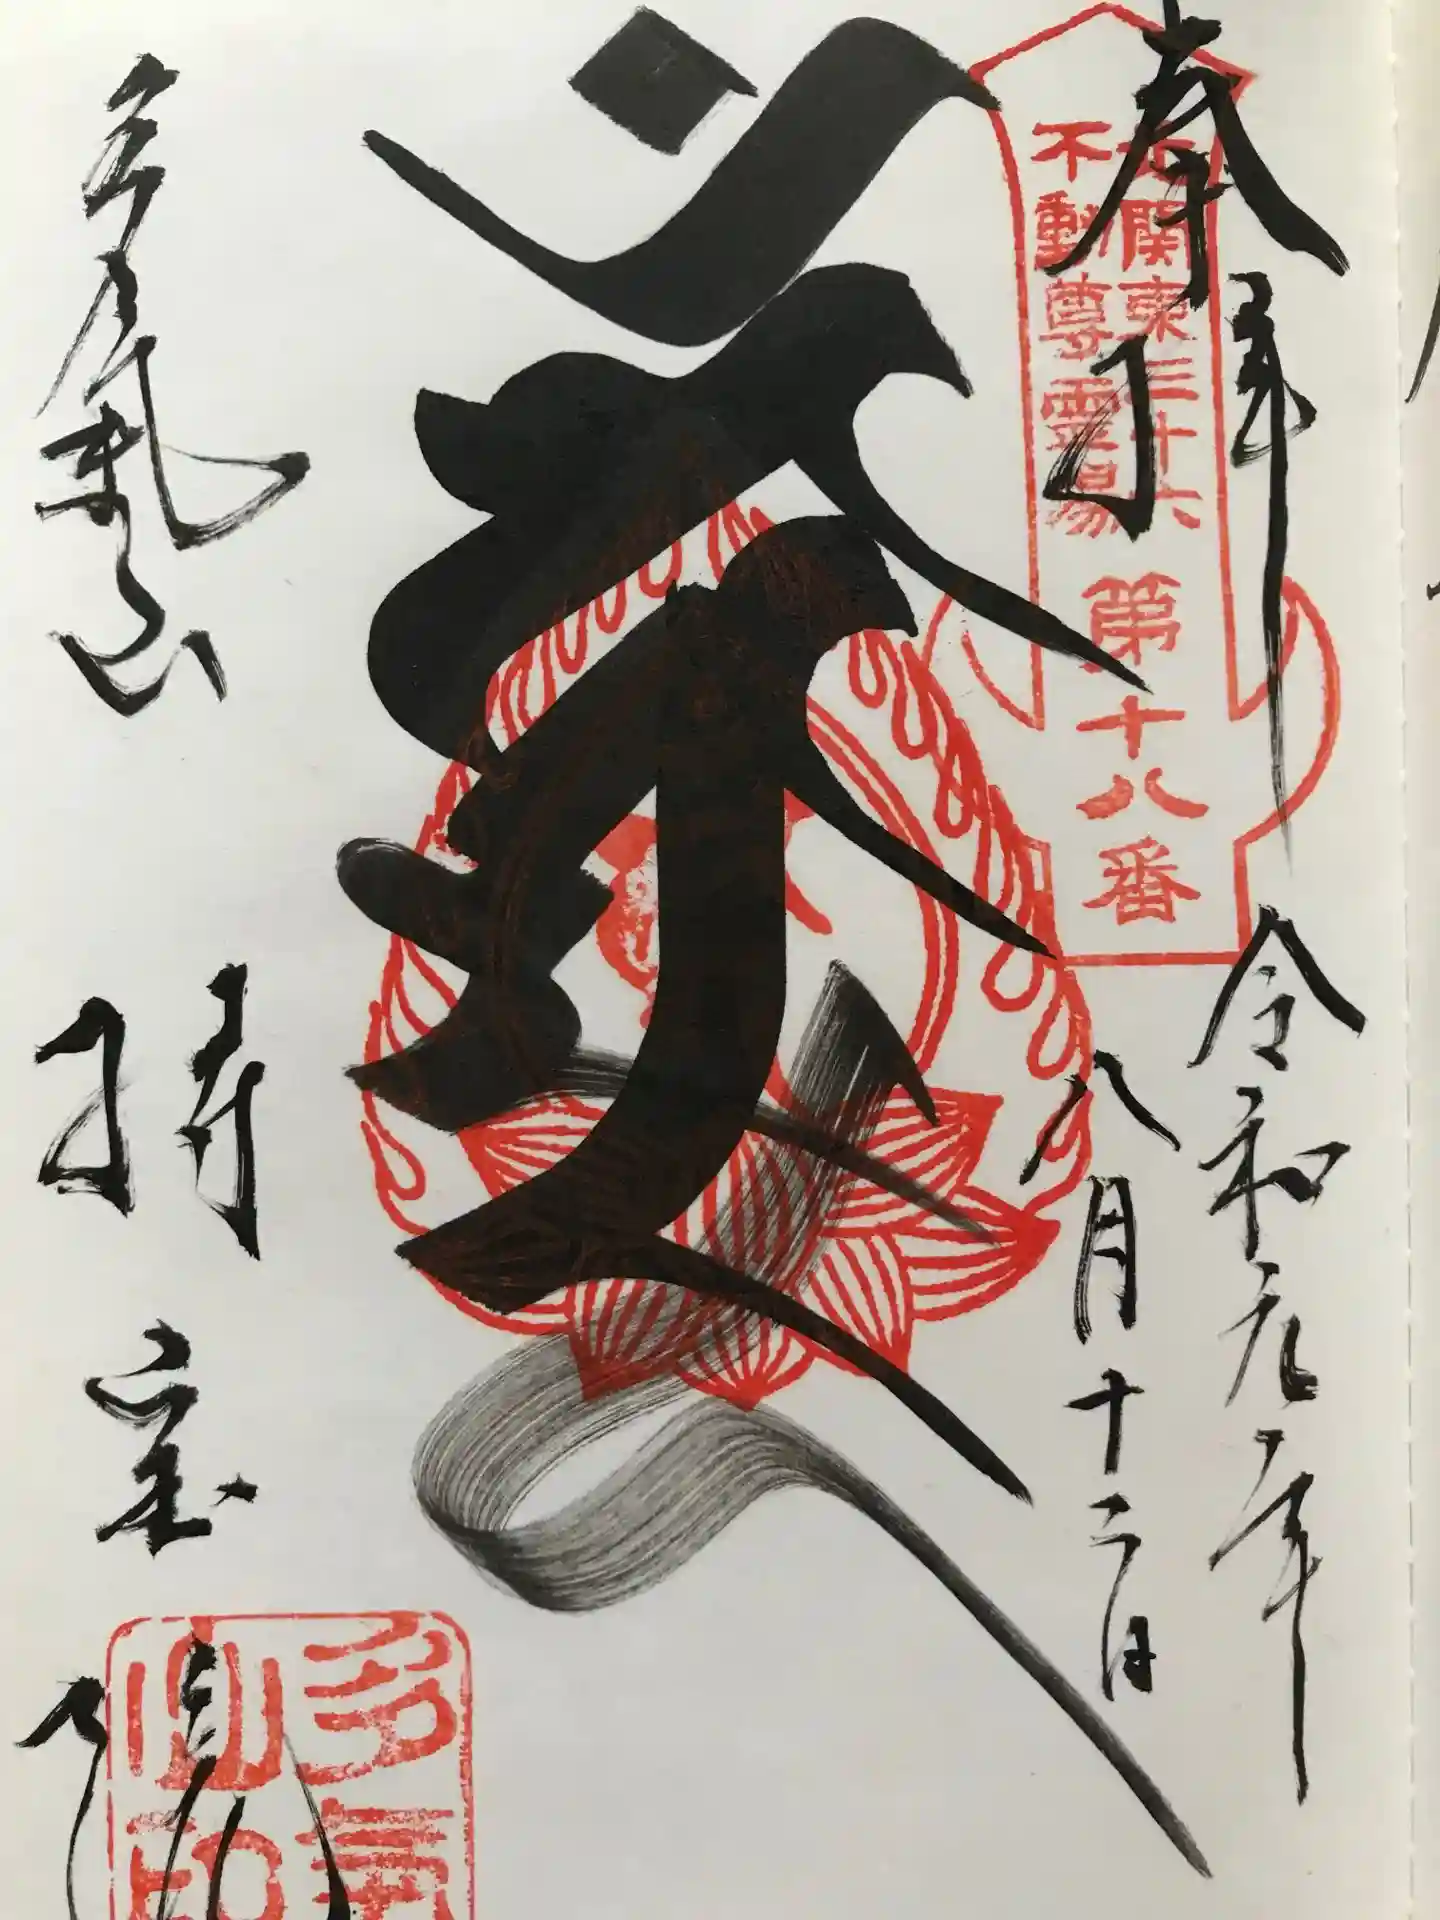 奉拝
北関東三十六
不動尊霊場
第十八番
令和元年
八月十二日
多氣山
持宝院
多氣
山印